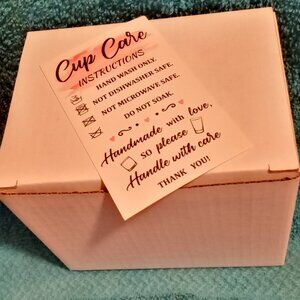 Cup Care
INSTRUCTIONS
HAND WASH ONLY.
NOT DISHWASHER SAFE.
NOT MICROWAVE SAFE.
DO NOT SOAK
Handmade with love,
so please
Handle with care
THANK YOU!